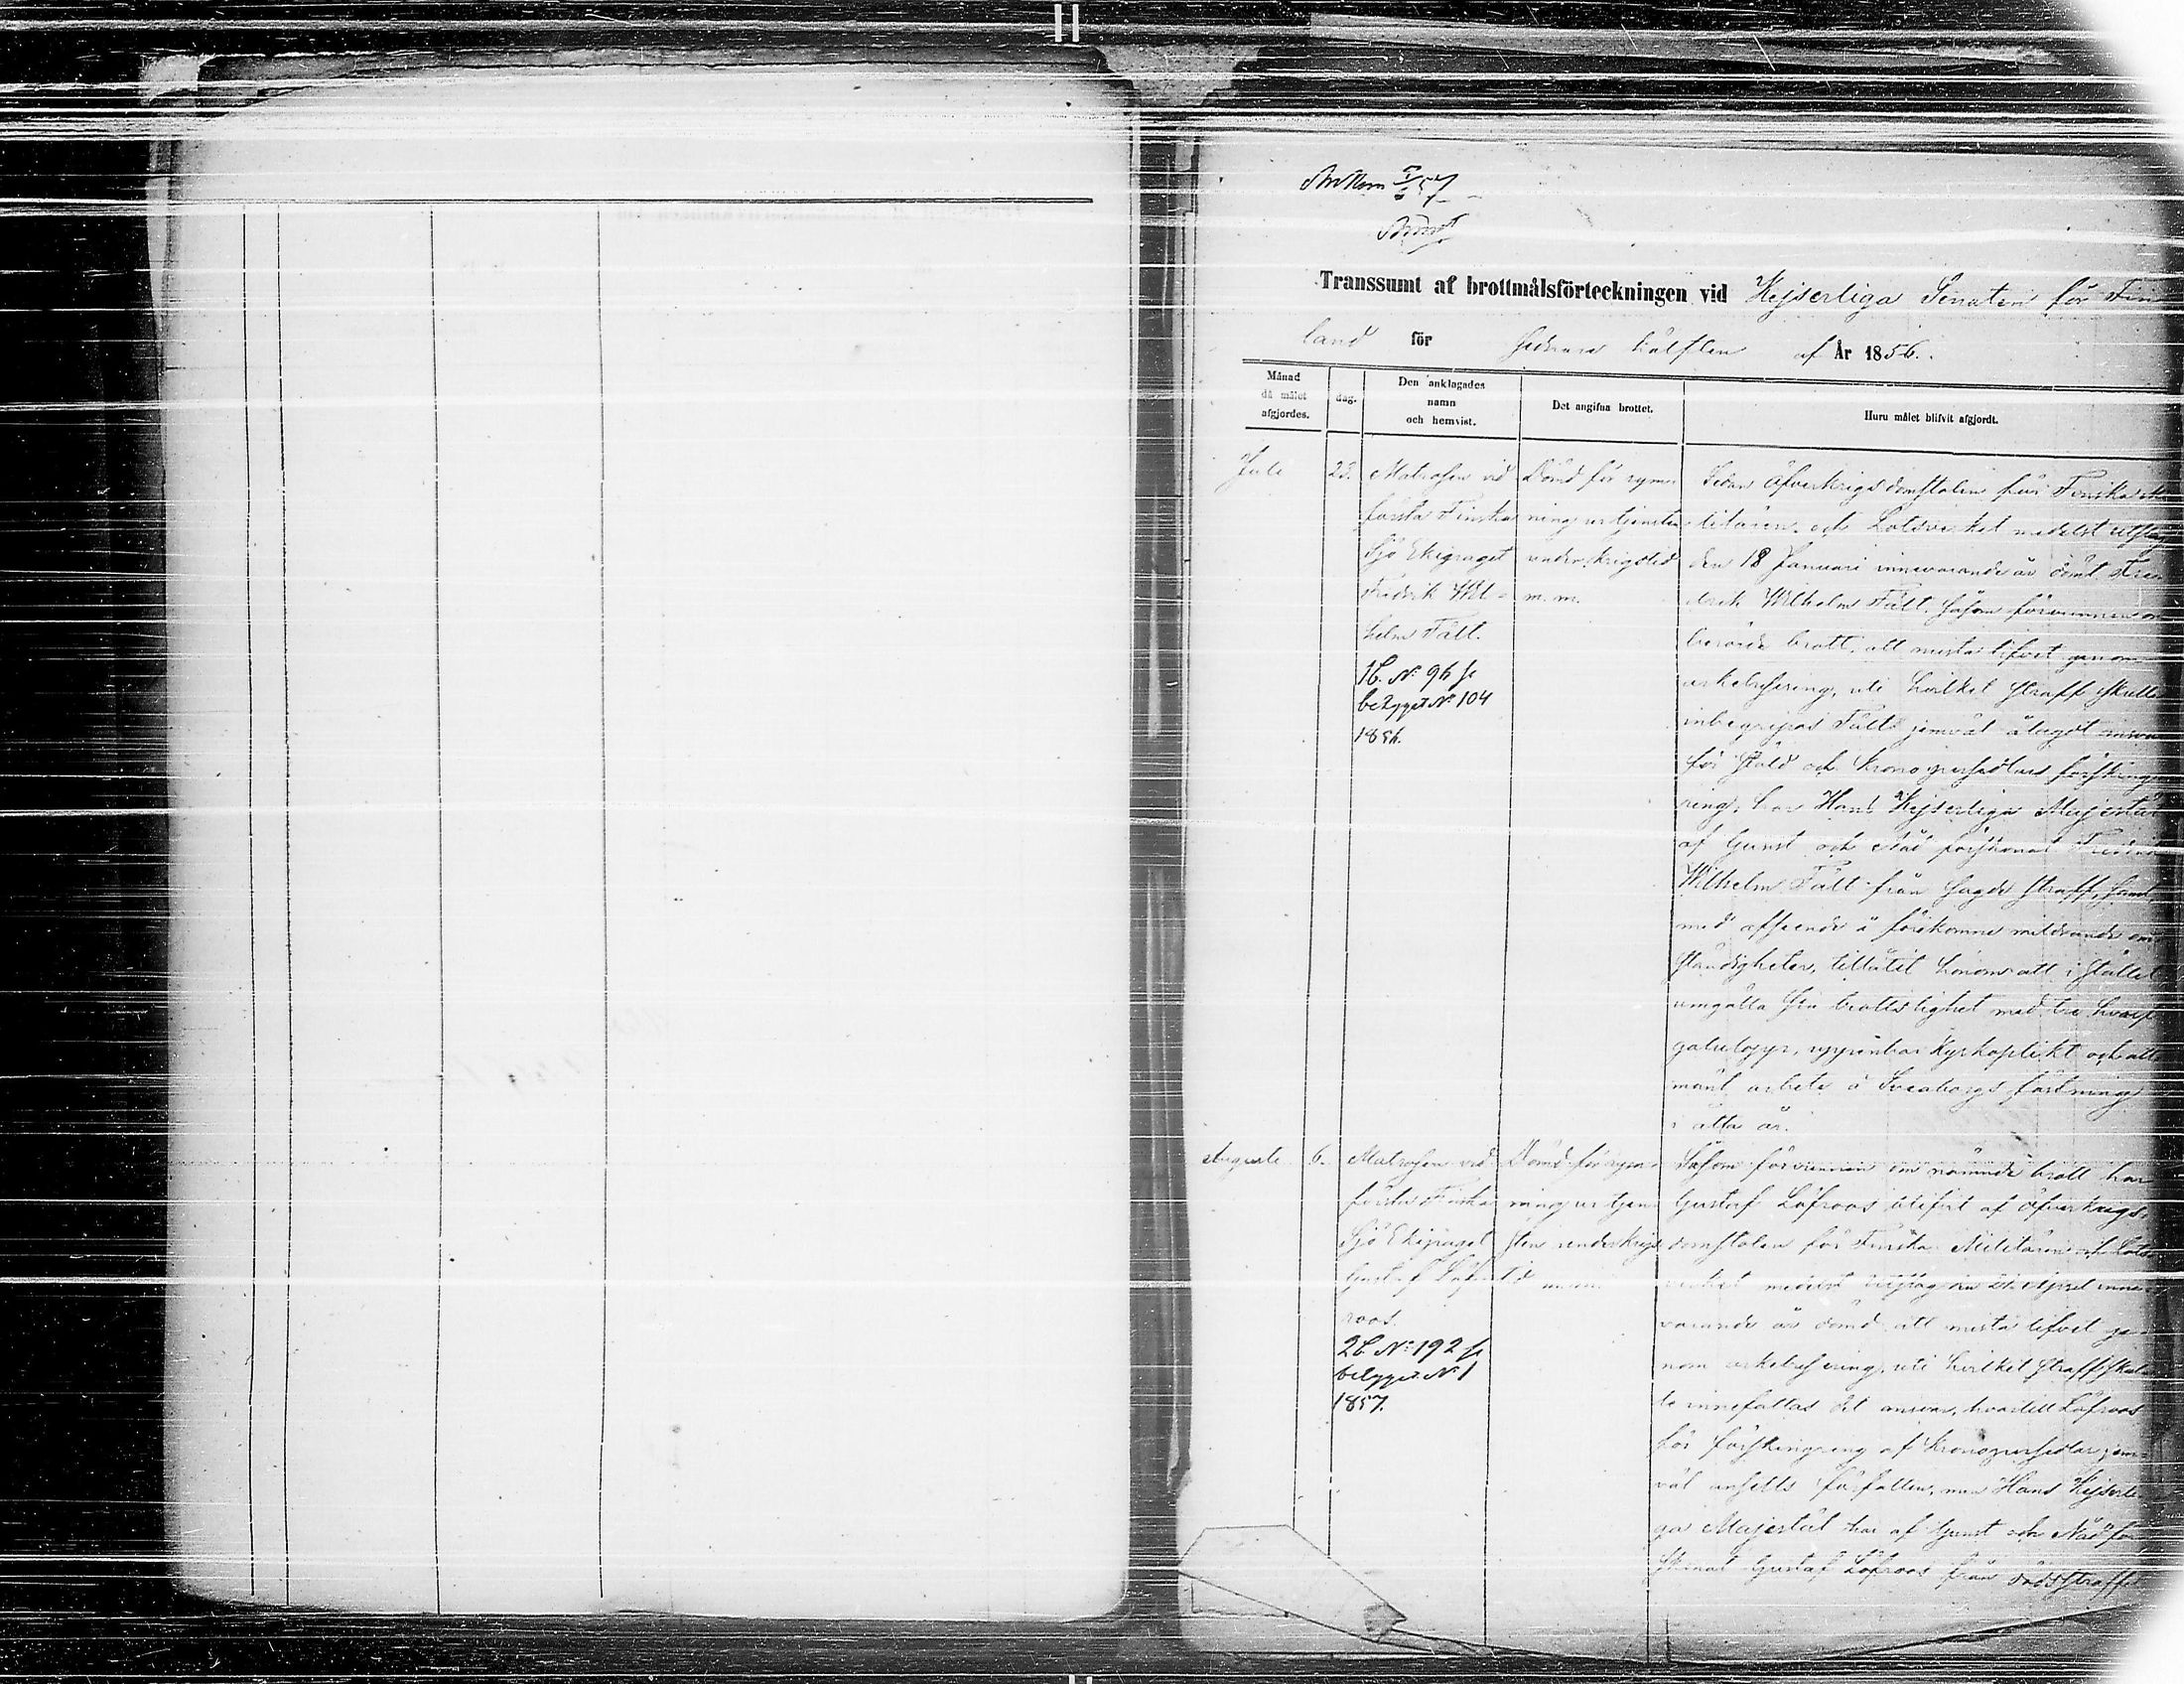 Transsumt af brottmålsförteckningen vid Kejserliga Senaten för Fin
land för sednare hälften af År 1856.
Månad
då målet
afgjordes.
dag.
Den anklagades
namn
och hemvist.
Det angifna brottet.
Huru målet blifvit afgjordt.
Juli
23.
Matrosen vid
första Finska
Sjö Ekipaget
Fredrik Wil-
helm Fält.
1856.
Dömd för rym-
ning ur tjensten
under krigstid
m. m.
Sedan Öfverkrigsdomstolen för Finska Mi
litären och Lotsverket medelst utslag
den 18 Januari innevarande år dömt Fre
drik Wilhelm Fält, såsom förvunnen om
berörde brott, att mista lifvet genom
arkebusering, uti hvilket straff skulle
inbegripas Fält jemväl ålagdt ansva
för stöld och Kronopersedlars förskingr
ring, har Hans Kejserliga Majestät
af Gunst och Nåd förskonat Fredrik
Wilhelm Fält från sagde straff, samt
med afseende å förekomne mildrande om
ständigheter, tillåtit honom att i stället
umgälla sin brottslighet med tre hvarf
gatulopp, uppenbar Kyrkoplikt och all
mänt arbete å Sveaborgs fästning
i åtta år.
Augusti
6.
Matrosen vid
första Finska
Sjö Ekipaget
Gustaf Löf-
roos.
2b. No 192
No 1
1857.
Dömd för rym-
ning ur tjen-
sten under krigs-
tid m. m.
Såsom förvunnen om nämnde brott har
Gustaf Löfroos blifvit af Öfverkrigs-
domstolen för Finska Militären och Lots
verket medelst utslag den April inne-
varande år dömd att mista lifvet ge-
nom arkebusering, uti hvilket straff skul-
le innefattas det ansvar, hvartill Löfroos
för förskingring af Kronopersedlar jem-
väl ansetts förfallen, men Hans Kejserli-
ga Majestät har af Gunst och Nåd för
skonat Gustaf Löfroos från dödsstraffet